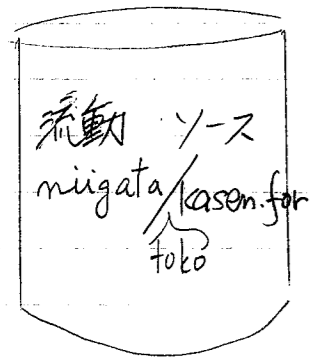 流動 ソース
niigata/kasen.for
toko